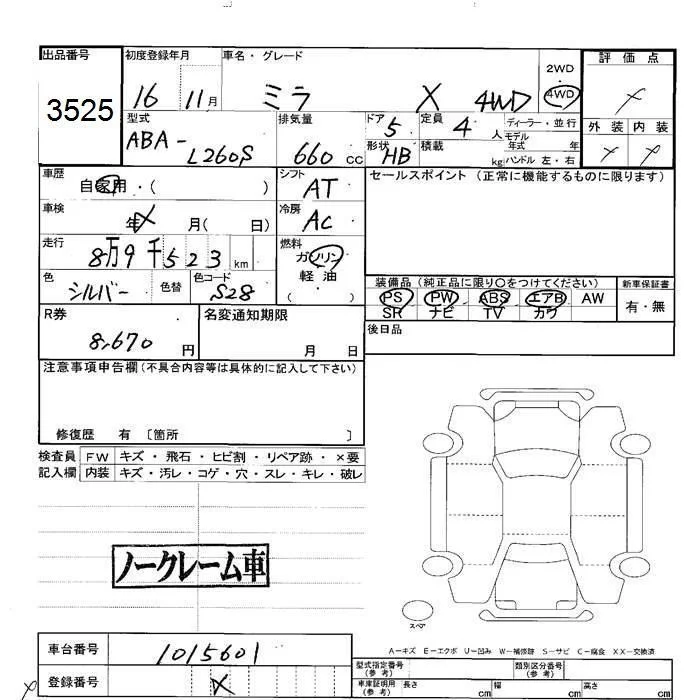 出品番号 初度登録年月 車名・グレード 2WD 評価点
3525 16 11月 ミラ X 4WD 4WD
型式 ABA-L260S 排気量 660cc ドア 5 定員 4人 ディーラー・並行 外装 内装
形状 HB 積載 kg モデル年式 年
ハンドル 左・右
車歴 自家用・( ) シフト AT セールスポイント(正常に機能するものに限ります)
車検 年 月( 日) 冷房 AC
走行 8万9千523km 燃料 ガソリン
軽油
( )
色 シルバー 色替 色コード S28 装備品(純正品に限り○をつけてください) 新車保証書
PS PW ABS エアB AW 有・無
SR ナビ TV カワ
R券 8,670円 名変通知期限 月 日 後日品
注意事項申告欄(不具合内容等は具体的に記入して下さい)
修復歴 有 〔箇所 〕
検査員 FW キズ・飛石・ヒビ割・リペア跡・×要
記入欄 内装 キズ・汚レ・コゲ・穴・スレ・キレ・破レ
ノークレーム車
スペア
A-キズ E-エクボ U-凹み W-補修跡 S-サビ C-腐食 XX-交換済
車台番号 1015601 型式指定番号(参考) 類別区分番号(参考)
登録番号 車庫証明用(参考) 長さ cm 幅 cm 高さ cm